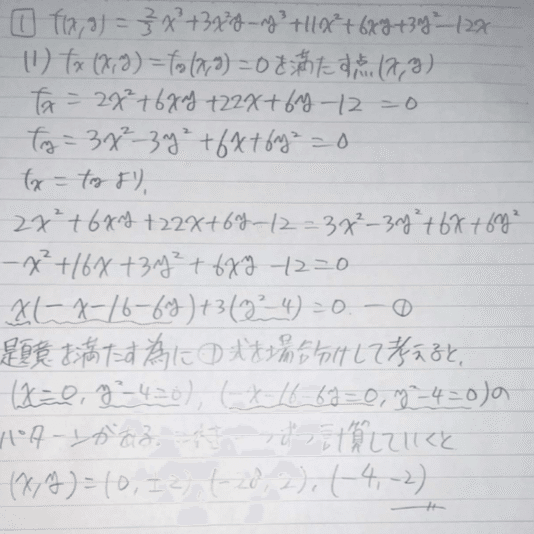 ① f(x,y) = 2/3 x³+3x²y-y³+11x²+6xy+3y²-12x
(1) fx(x,y)=fy(x,y)=0を満たす点(x,y)
fx = 2x²+6xy+22x+6y-12 = 0
fy = 3x²-3y²+6x+6y² = 0
fx = fyより,
2x²+6xy+22x+6y-12=3x²-3y²+6x+6y²
-x²+16x+3y²+6xy-12=0
x(-x-16-6y)+3(y²-4)=0 -①
題意を満たす為に①式を場合分けして考えると,
(x=0, y²-4=0), (-x-16-6y=0, y²-4=0)の
パターンがある. 計算していくと
(x,y)=(0,±2), (-28,2), (-4,-2)